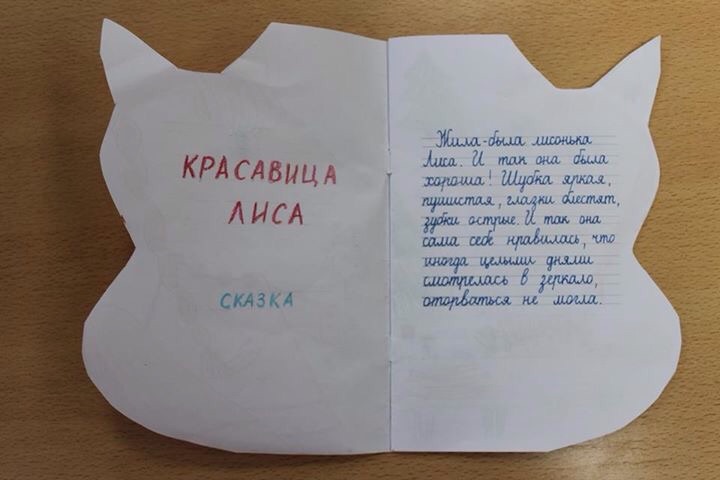 КРАСАВИЦА
ЛИСА
СКАЗКА
Жила-была лисонька
Лиса. И так она была
хороша! Шубка яркая,
пушистая, глазки блестят,
зубки острые. И так она
сама себе нравилась, что
иногда целыми днями
смотрелась в зеркало,
оторваться не могла.